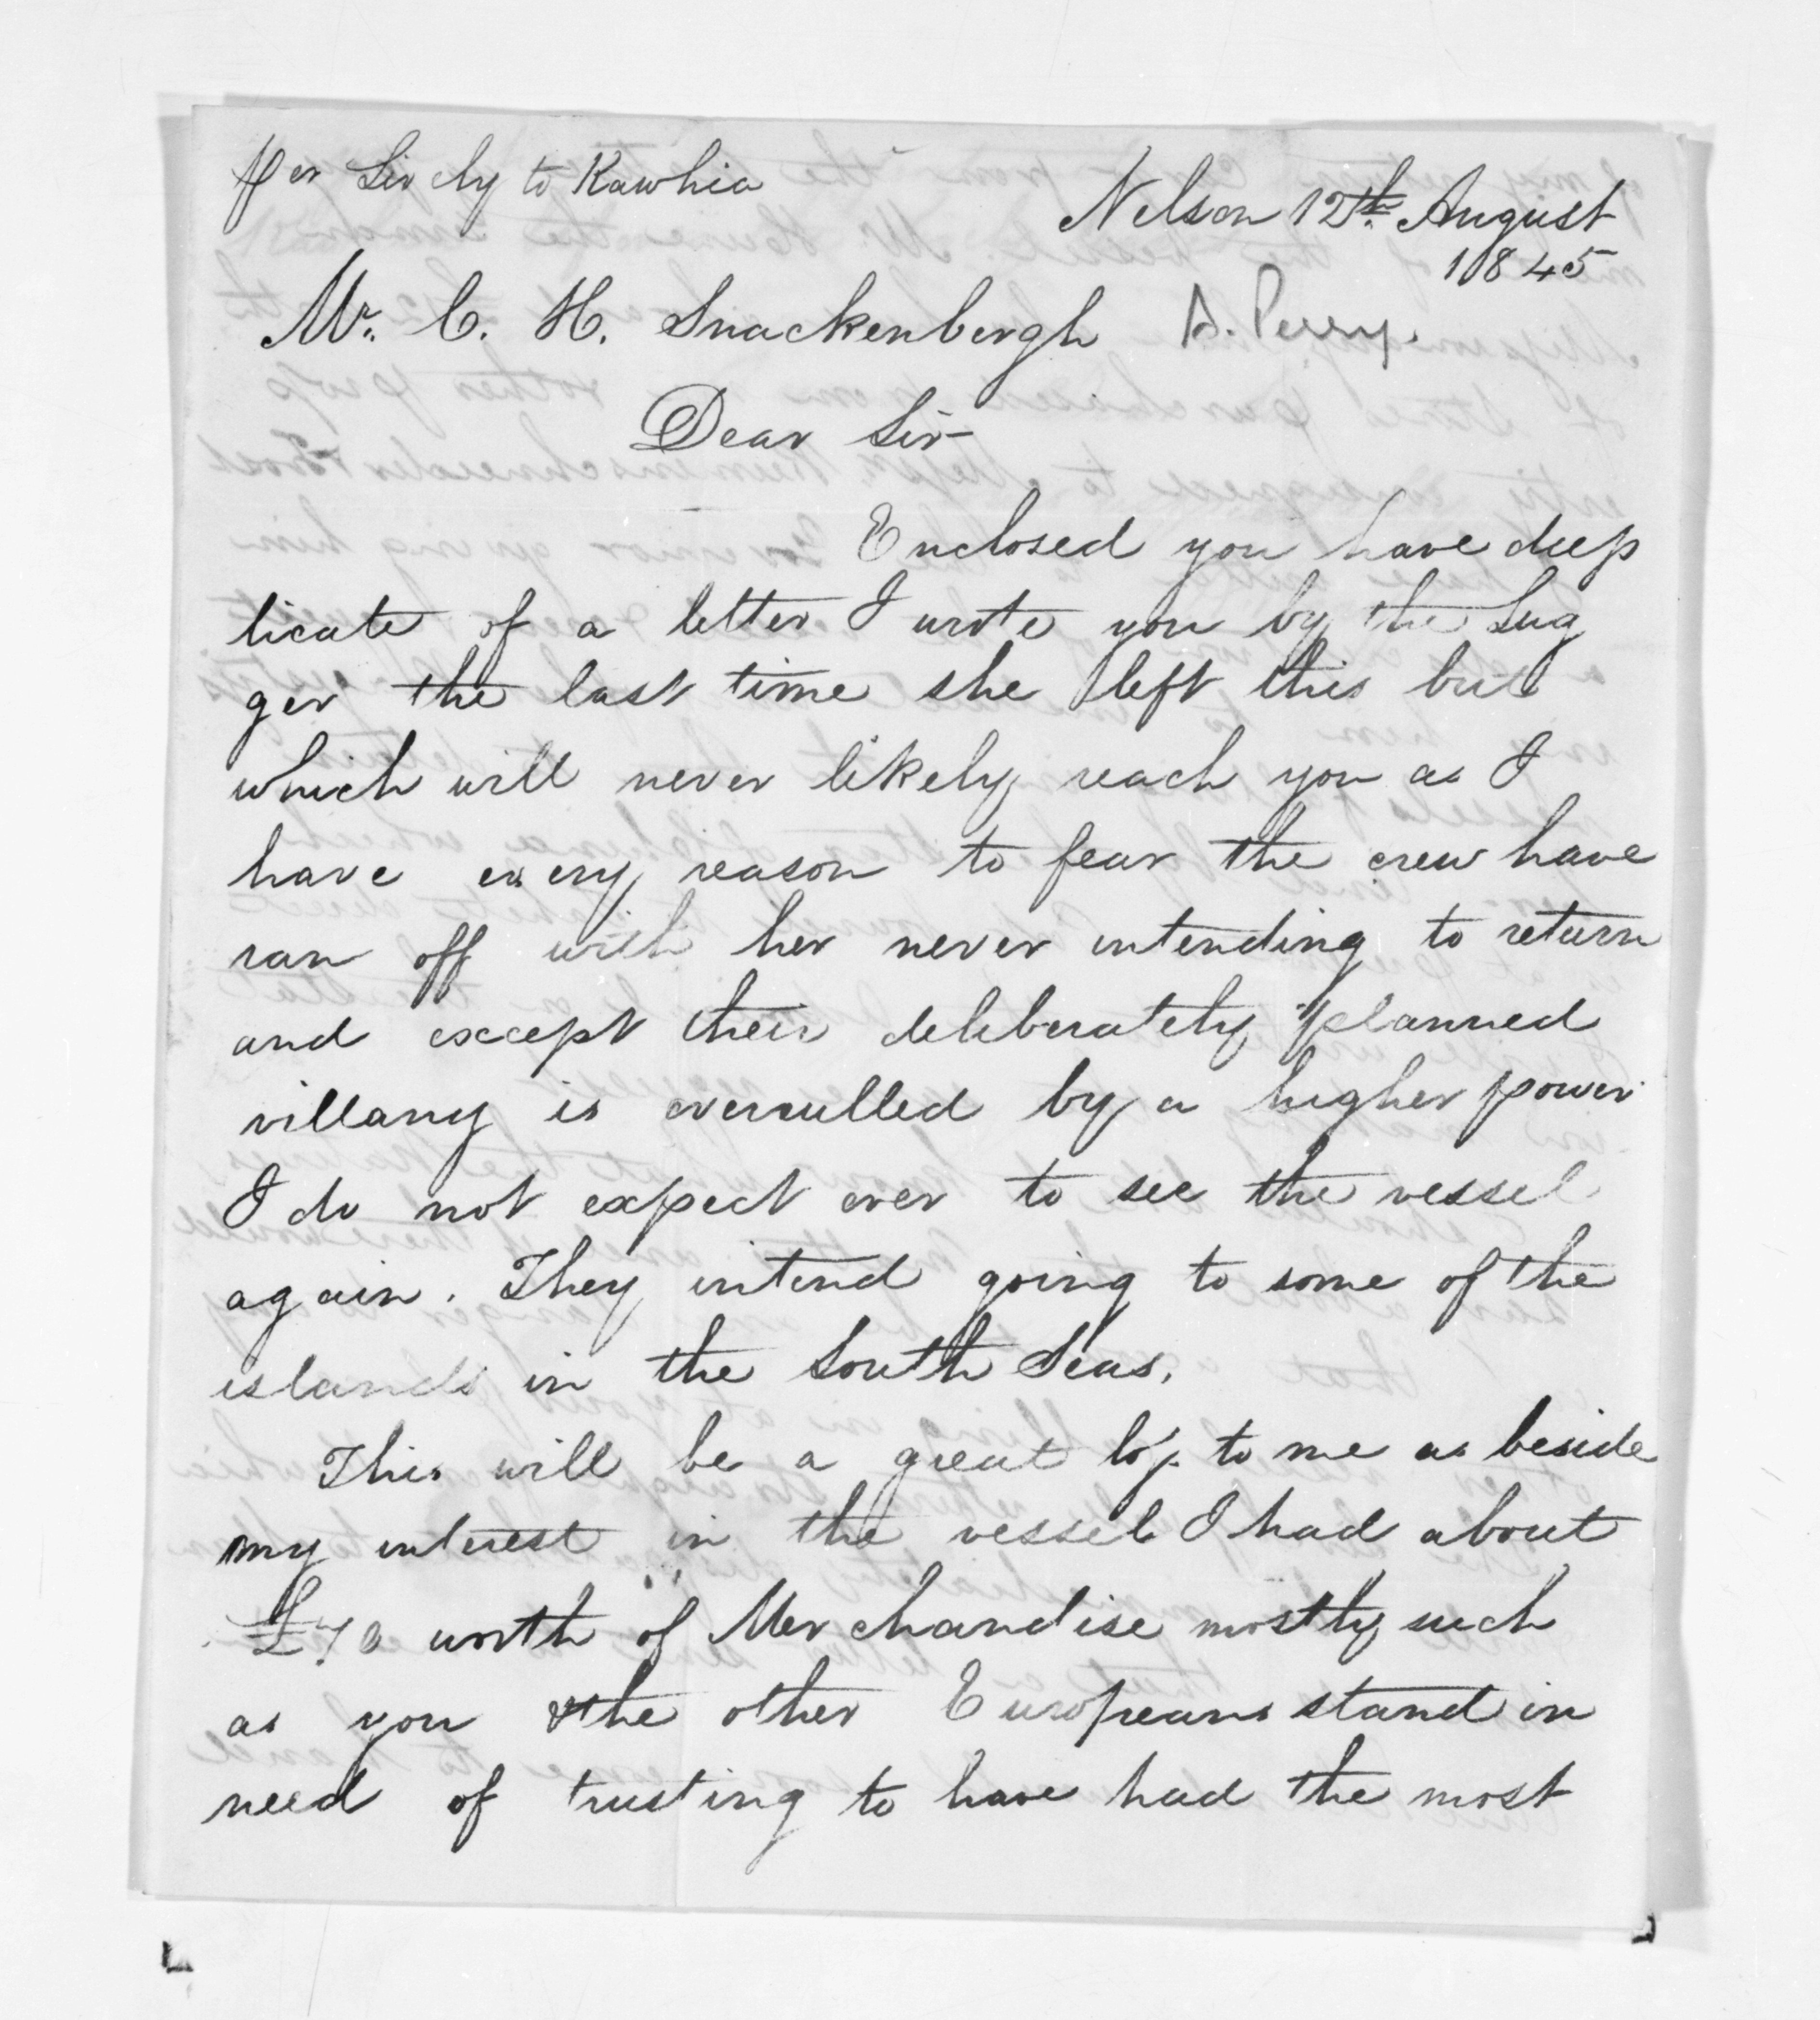 Per Lively to Kawhia
Nelson 12th August
1845
Mr. C. H. Snackenbergh D. Perry.
Dear Sir
Enclosed you have dup
licate of a letter I wrote you by the Lug
ger the last time she left this but
which will never likely reach you as I
have every reason to fear the crew have
ran off with her never intending to return
and except their deliberately planned
villany is overrulled by a higher power
I do not expect ever to see the vessel
again. They intend going to some of the
islands in the South Seas.
This will be a great loss to me as beside
my interest in the vessel I had about
£70 worth of Merchandise mostly such
as you & the other Europeans stand in
need of trusting to have had the most